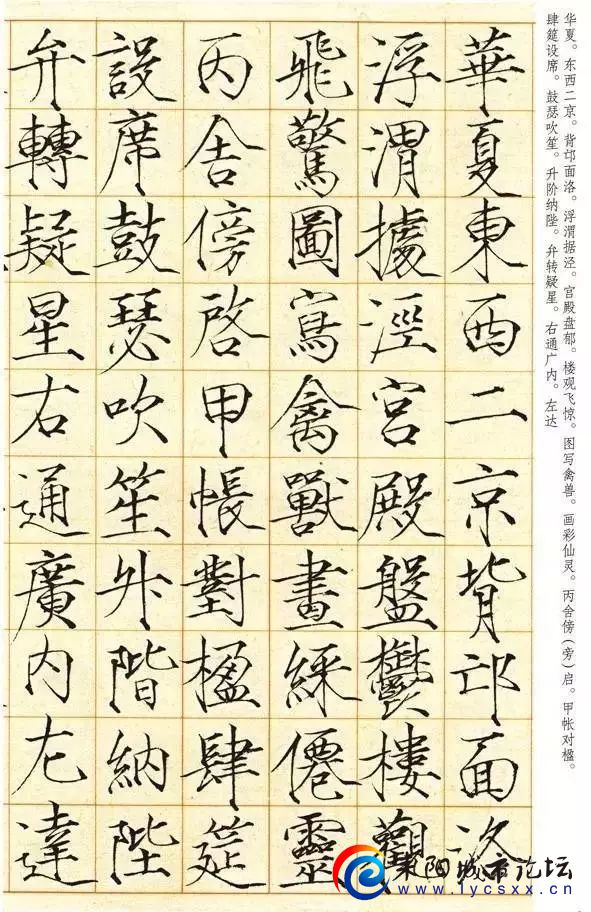 华夏。东西二京。背邙面洛。浮渭据泾。宫殿盘郁。楼观飞惊。图写禽兽。画彩仙灵。丙舍傍(旁)启。甲帐对楹。
肆筵设席。鼓瑟吹笙。升阶纳陛。弁转疑星。右通广内。左达
華夏東西二京背邙面洛
浮渭據涇宮殿盤鬱樓觀
飛驚圖寫禽獸畫綵僊靈
丙舍傍啓甲帳對楹肆筵
設席鼓瑟吹笙升階納陛
弁轉疑星右通廣內左達
耒阳城市论坛
www.lycsxx.cn